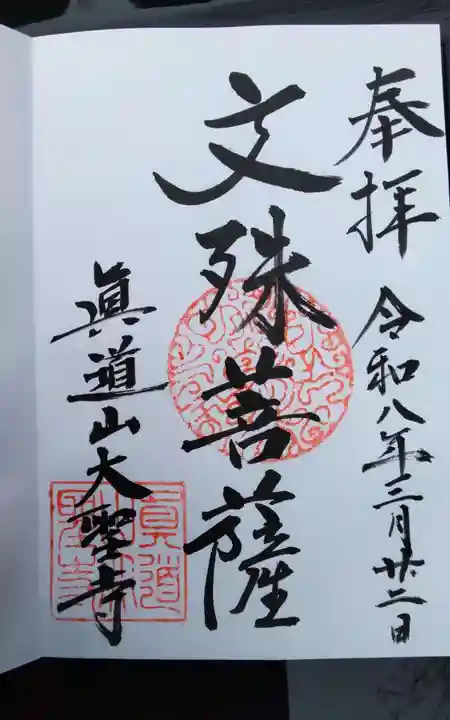 奉拝
令和八年三月廿二日
文殊菩薩
眞道山大聖寺